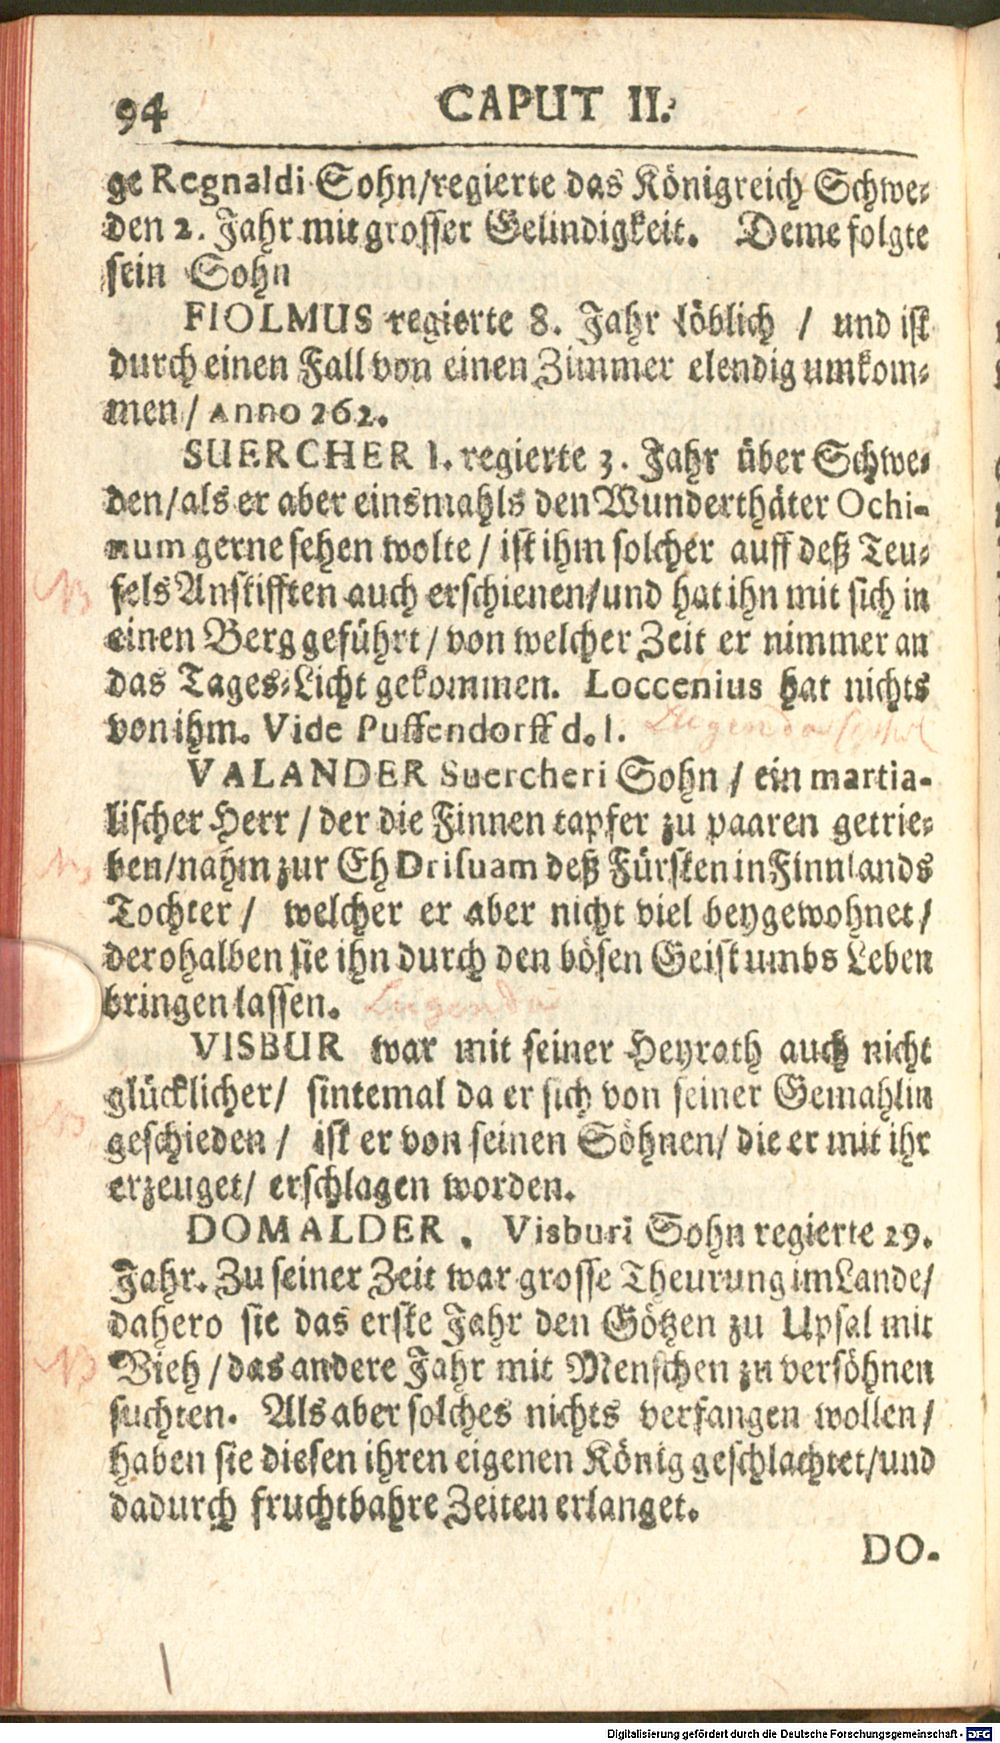 94 CAPUT II.
ge Regnaldi Sohn/regierte das Königreich Schwe⸗
den 2. Jahr mit grosser Gelindigkeit. Deme folgte
sein Sohn
FIOLMUS regierte 8. Jahr löblich / und ist
durch einen Fall von einen Zimmer elendig umkom⸗
men / Anno 262.
SUERCHER I. regierte 3. Jahr über Schwe⸗
den/als er aber einsmahls den Wunderthäter Ochi-
num gerne sehen wolte / ist ihm solcher auff deß Teu⸗
NB fels Anstifften auch erschienen/und hat ihn mit sich in
einen Berg geführt / von welcher Zeit er nimmer an
das Tages⸗Licht gekommen. Loccenius hat nichts
von ihm. Vide Puffendorff d. l.
VALANDER Suercheri Sohn / ein martia-
lischer Herr / der die Finnen tapfer zu paaren getrie⸗
NB ben/nahm zur Eh Drisuam deß Fürsten in Finnlands
Tochter / welcher er aber nicht viel beygewohnet/
derohalben sie ihn durch den bösen Geist umbs Leben
bringen lassen.
VISBUR war mit seiner Heyrath auch nicht
glücklicher/ sintemal da er sich von seiner Gemahlin
NB geschieden / ist er von seinen Söhnen/ die er mit ihr
erzeuget/ erschlagen worden.
DOMALDER. Visburi Sohn regierte 29.
Jahr. Zu seiner Zeit war grosse Theurung im Lande/
dahero sie das erste Jahr den Götzen zu Upsal mit
NB Vieh / das andere Jahr mit Menschen zu versöhnen
suchten. Als aber solches nichts verfangen wollen/
haben sie diesen ihren eigenen König geschlachtet/und
dadurch fruchtbahre Zeiten erlanget.
DO-
Digitalisierung gefördert durch die Deutsche Forschungsgemeinschaft - DFG